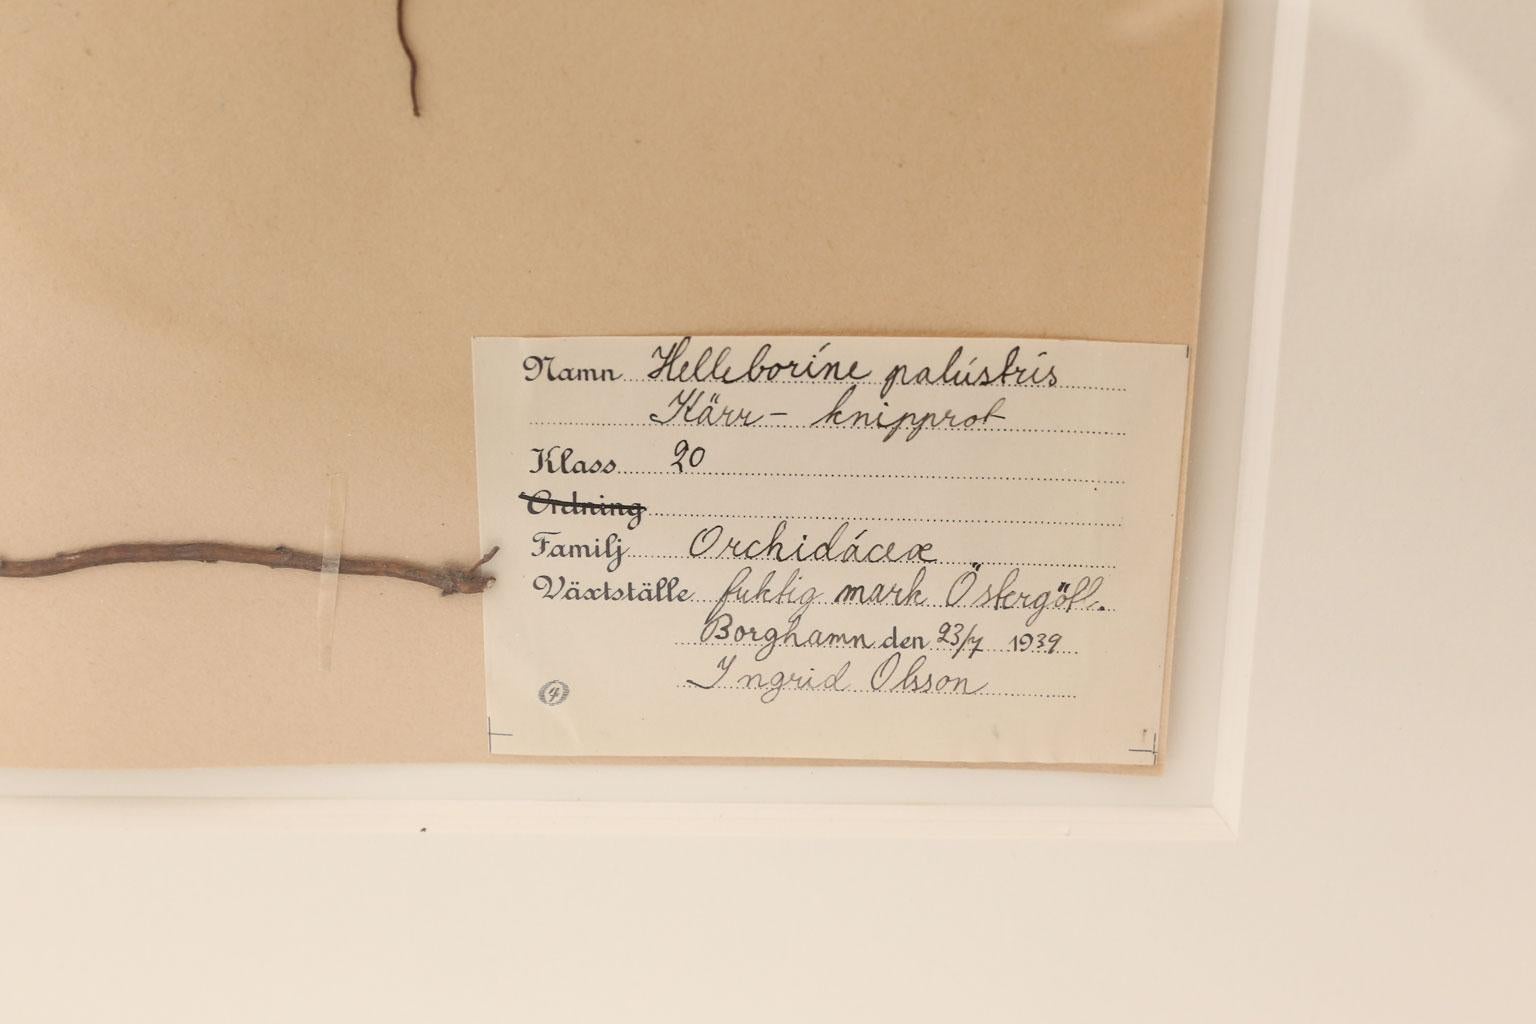 Namn Helleboríne palústris
Kärr- knipprot
Klass 20
Ordning
Familj Orchidáceæ
Växtställe fuktig mark Östergötl.
Borghamn den 23/7 1939
Ingrid Olsson
4